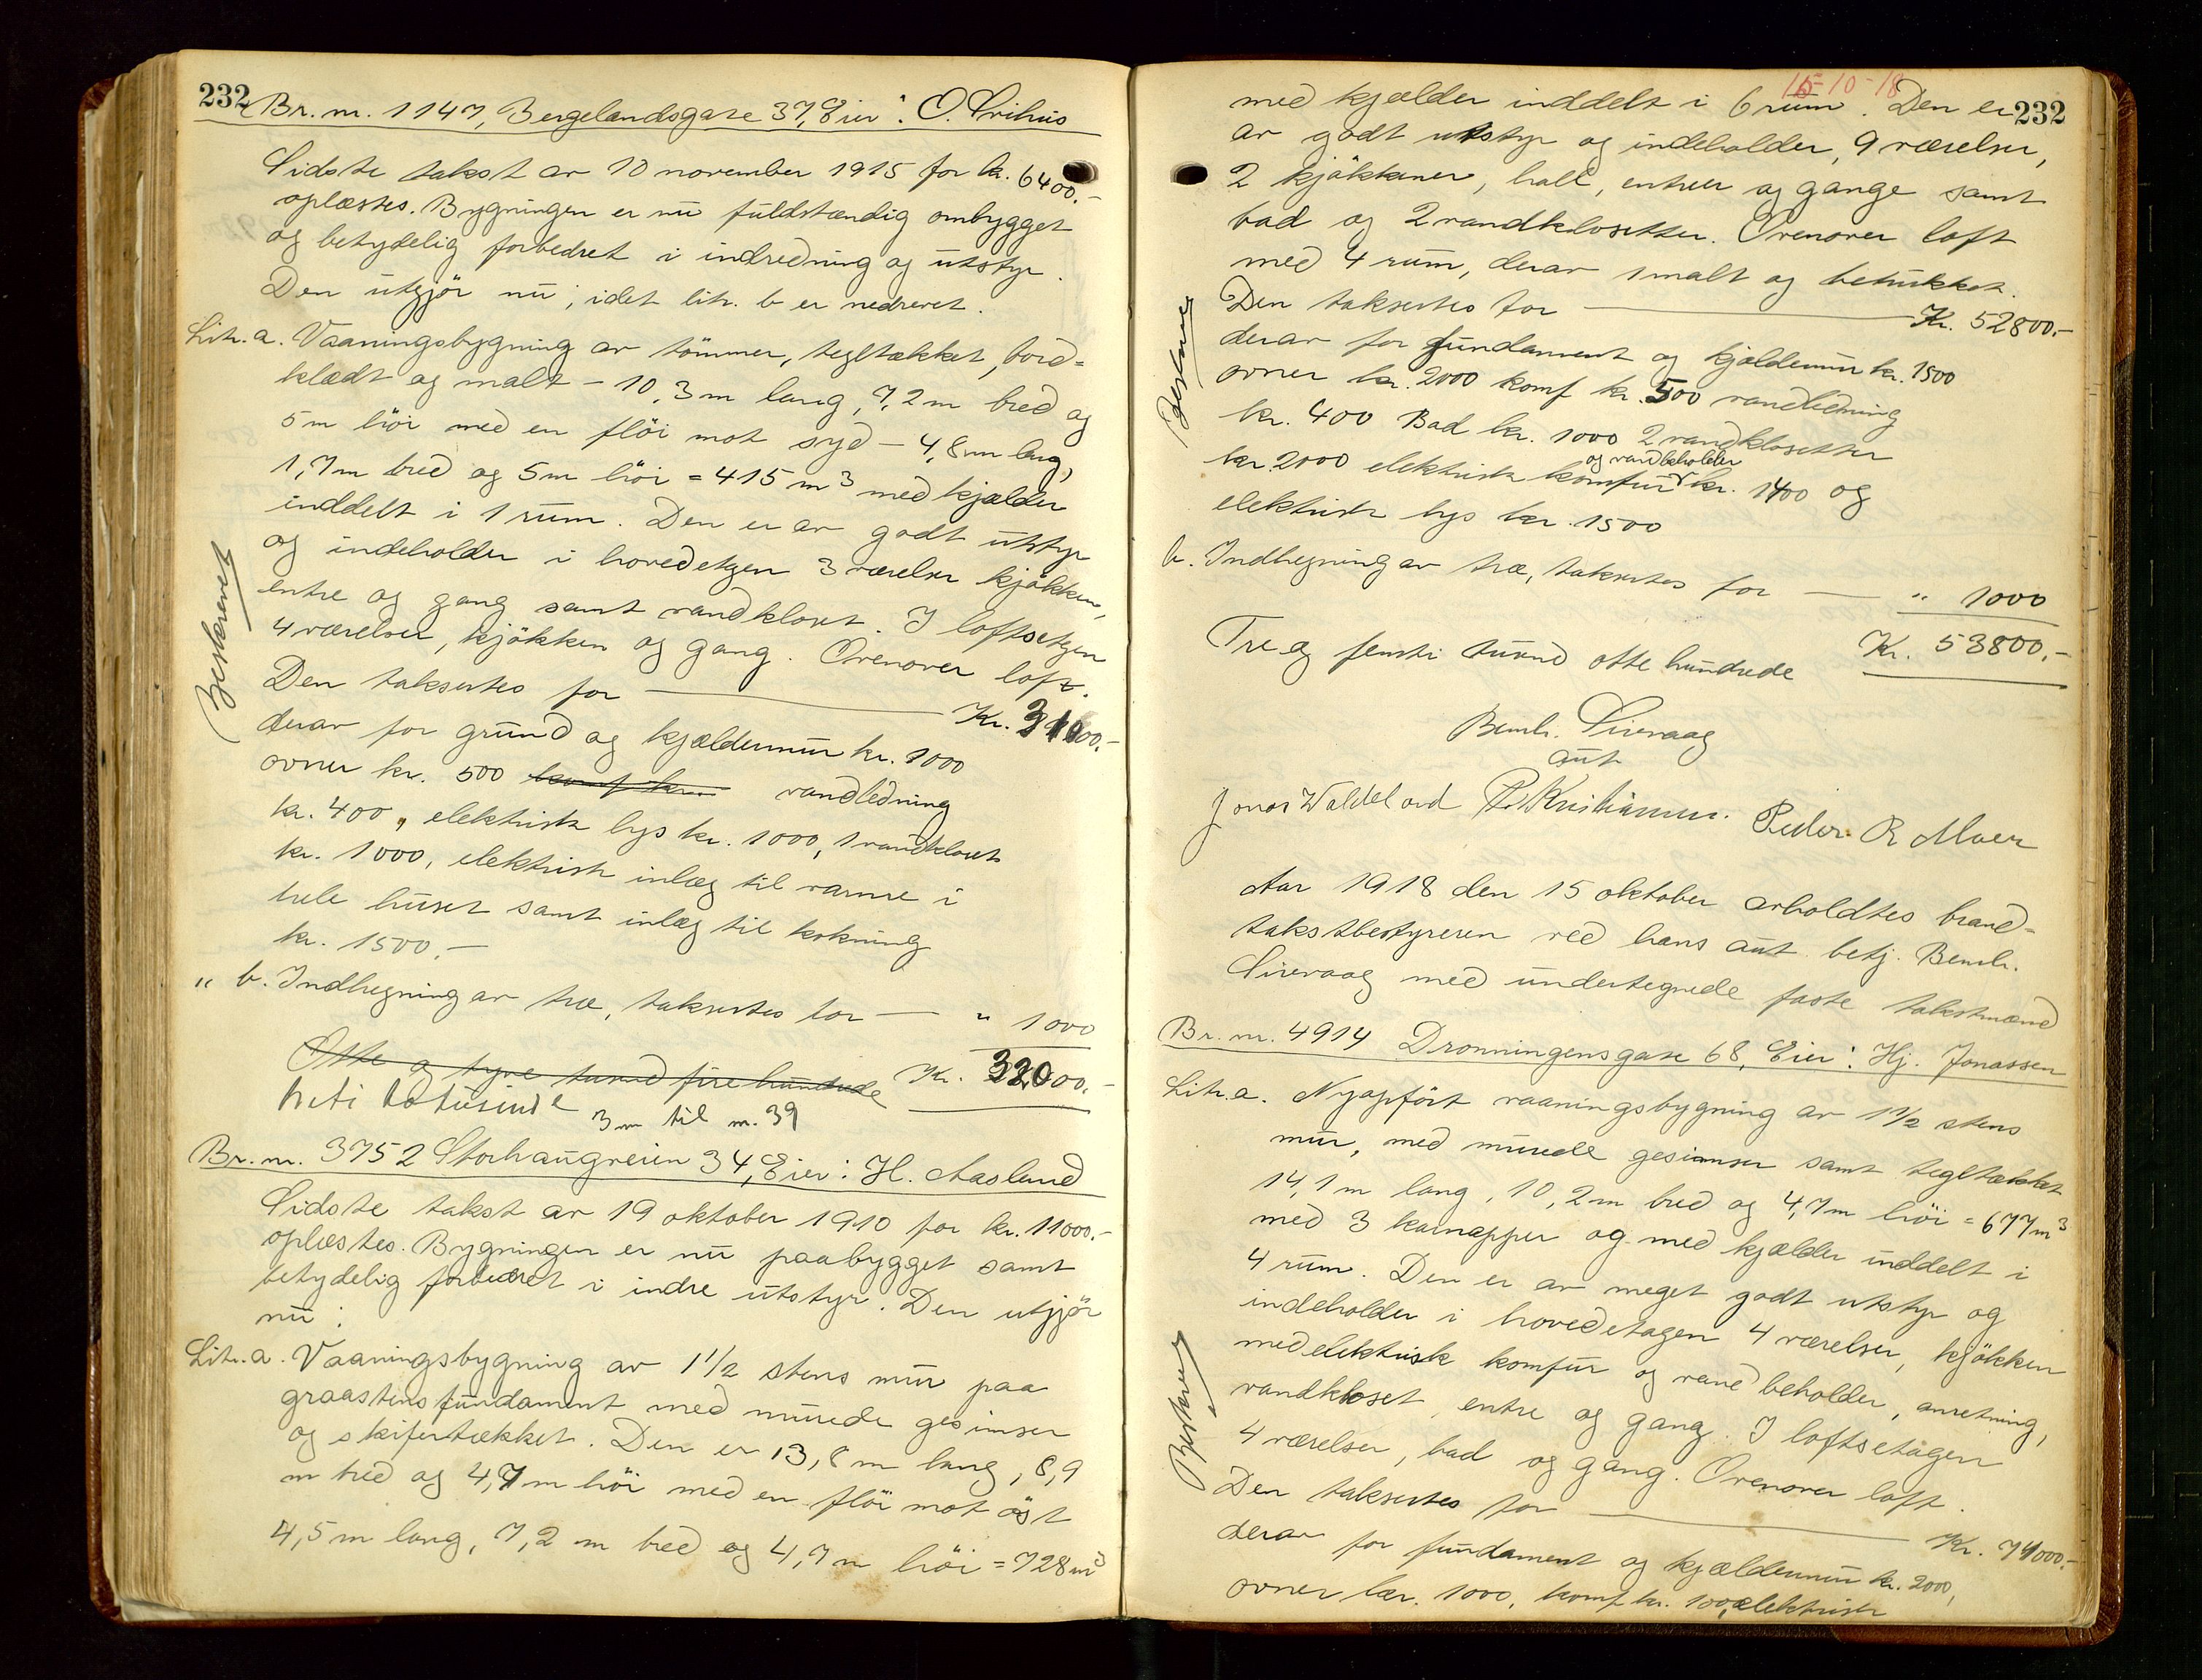 232
Br. nr. 1147, Bergelandsgate 37, Eier: O.
Sidste takst av 10 november 1915 for kr. 6400.-
oplæstes. Bygningen er nu fuldstændig ombygget
og betydelig forbedret i indredning og utstyr.
Den utgjör nu, idet litr. b er nedrevet.
Litr. a. Vaaningsbygning av tömmer, tegltækket, bord-
klædt og malt - 10,3 m lang, 7,2 m bred og
5 m höi med en flöi mot syd - 4,8 m lang,
1,7 m bred og 5 m höi = 415 m3 med kjælder
inddelt i 1 rum. Den er av godt utstyr
og indeholder i hovedetgen 3 værelser kjökken,
entre og gang samt vandkloset. I loftsetgen
4 værelser, kjökken og gang. Ovenover loft.
Den takseres for — Kr. 31000.-
derav for grund og kjældermur kr. 1000
ovner kr. 500 komf kr. vandledning
kr. 400, elektrisk lys kr. 1000, 1 vandkloset
kr. 1000, elektrisk inlæg til varme i
hele huset samt inlæg til kokning
kr. 1500.-
Beskrevet
" b. Indhegning av træ, takseres for — " 1000
Otte og tyve tusind fire hundrede Kr. 32000.-
treti to tusinde
3 m til nr. 39
Br. nr. 3752 Storhaugveien 34, Eier: H. Aasland
Sidste takst av 19 oktober 1910 for kr. 11000.-
oplæstes. Bygningen er nu paabygget samt
betydelig forbedret i indre utstyr. Den utgjör
nu:
Litr. a. Vaaningsbygning av 1 1/2 stens mur paa
graastens fundament med murede gesimser
og skifertækket. Den er 13,8 m lang, 8,9
m bred og 4,7 m höi med en flöi mot öst
4,5 m lang, 7,2 m bred og 4,7 m höi = 728 m3
15-10-18
232
med kjælder inddelt i 6 rum. Den er
av godt utstyr og indeholder, 9 værelser,
2 kjökkener, hall, entreer og gange samt
bad og 2 vandklosetter. Ovenover loft
med 4 rum, derav 1 malt og betrukket.
Den takseres for — Kr. 52800.-
derav for fundament og kjældermur kr. 1500
ovner kr. 2000 komf kr. 500 vandledning
kr. 400 Bad kr. 1000 2 vandklosetter
kr. 2000 elektrisk komfur og vandbeholder kr. 1400 og
elektrisk lys kr. 1500
b. Indhegning av træ, takseres for — " 1000
Kr. 53800.-
Tre og femti tusind otte hundrede
Bernh. Sirevaag
aut
Jonas Waldeland P. Kristiansen. Peder R Moen
Aar 1918 den 15 oktober avholdtes brand-
takstbestyreren ved hans aut. betj. Bernh.
Sirevaag med undertegnede faste takstmænd
Br. nr. 4914 Dronningensgate 68, Eier: Hj. Jonassen
Litr. a. Nyopfört vaaningsbygning av 1 1/2 stens
mur, med murede gesimser samt tegltækket
14,1 m lang, 10,2 m bred og 4,7 m höi = 677 m3
med 3 karnapper og med kjælder inddelt i
4 rum. Den er av meget godt utstyr og
indeholder i hovedetagen 4 værelser, kjökken
med elektrisk komfur og vandbeholder, anretning,
vandkloset, entre og gang. I loftsetagen
4 værelser, bad og gang. Ovenover loft.
Den takseres for — Kr. 74000.-
derav for fundament og kjældermur kr. 2000,
ovner kr. 1000, komf kr. 100, elektrisk